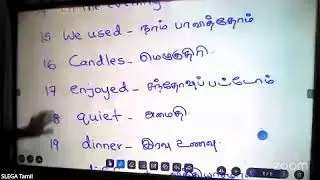 in the evening
15 We used - நாம் பாவித்தோம்
16 Candles - மெழுகுதிரி
17 enjoyed - சந்தோஷப்பட்டோம்
8 quiet - அமைதி
19 dinner - இரவு உணவு
zoom
SLEGA Tamil